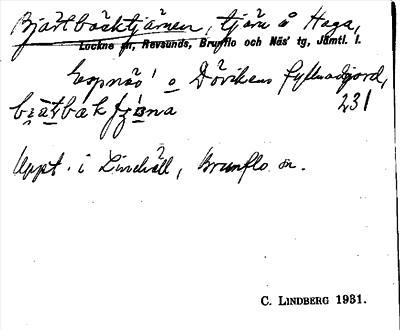 Bjärtbäcktjärnen, tjärn å Haga,
Lockne sn, Revsunds, Brunflo och Näs' tg, Jämtl. l.
Lopnäs' o Dövikens fyllnadsjord,
231
Uppt. i Lindvåll, Brunflo sn.
C. LINDBERG 1931.